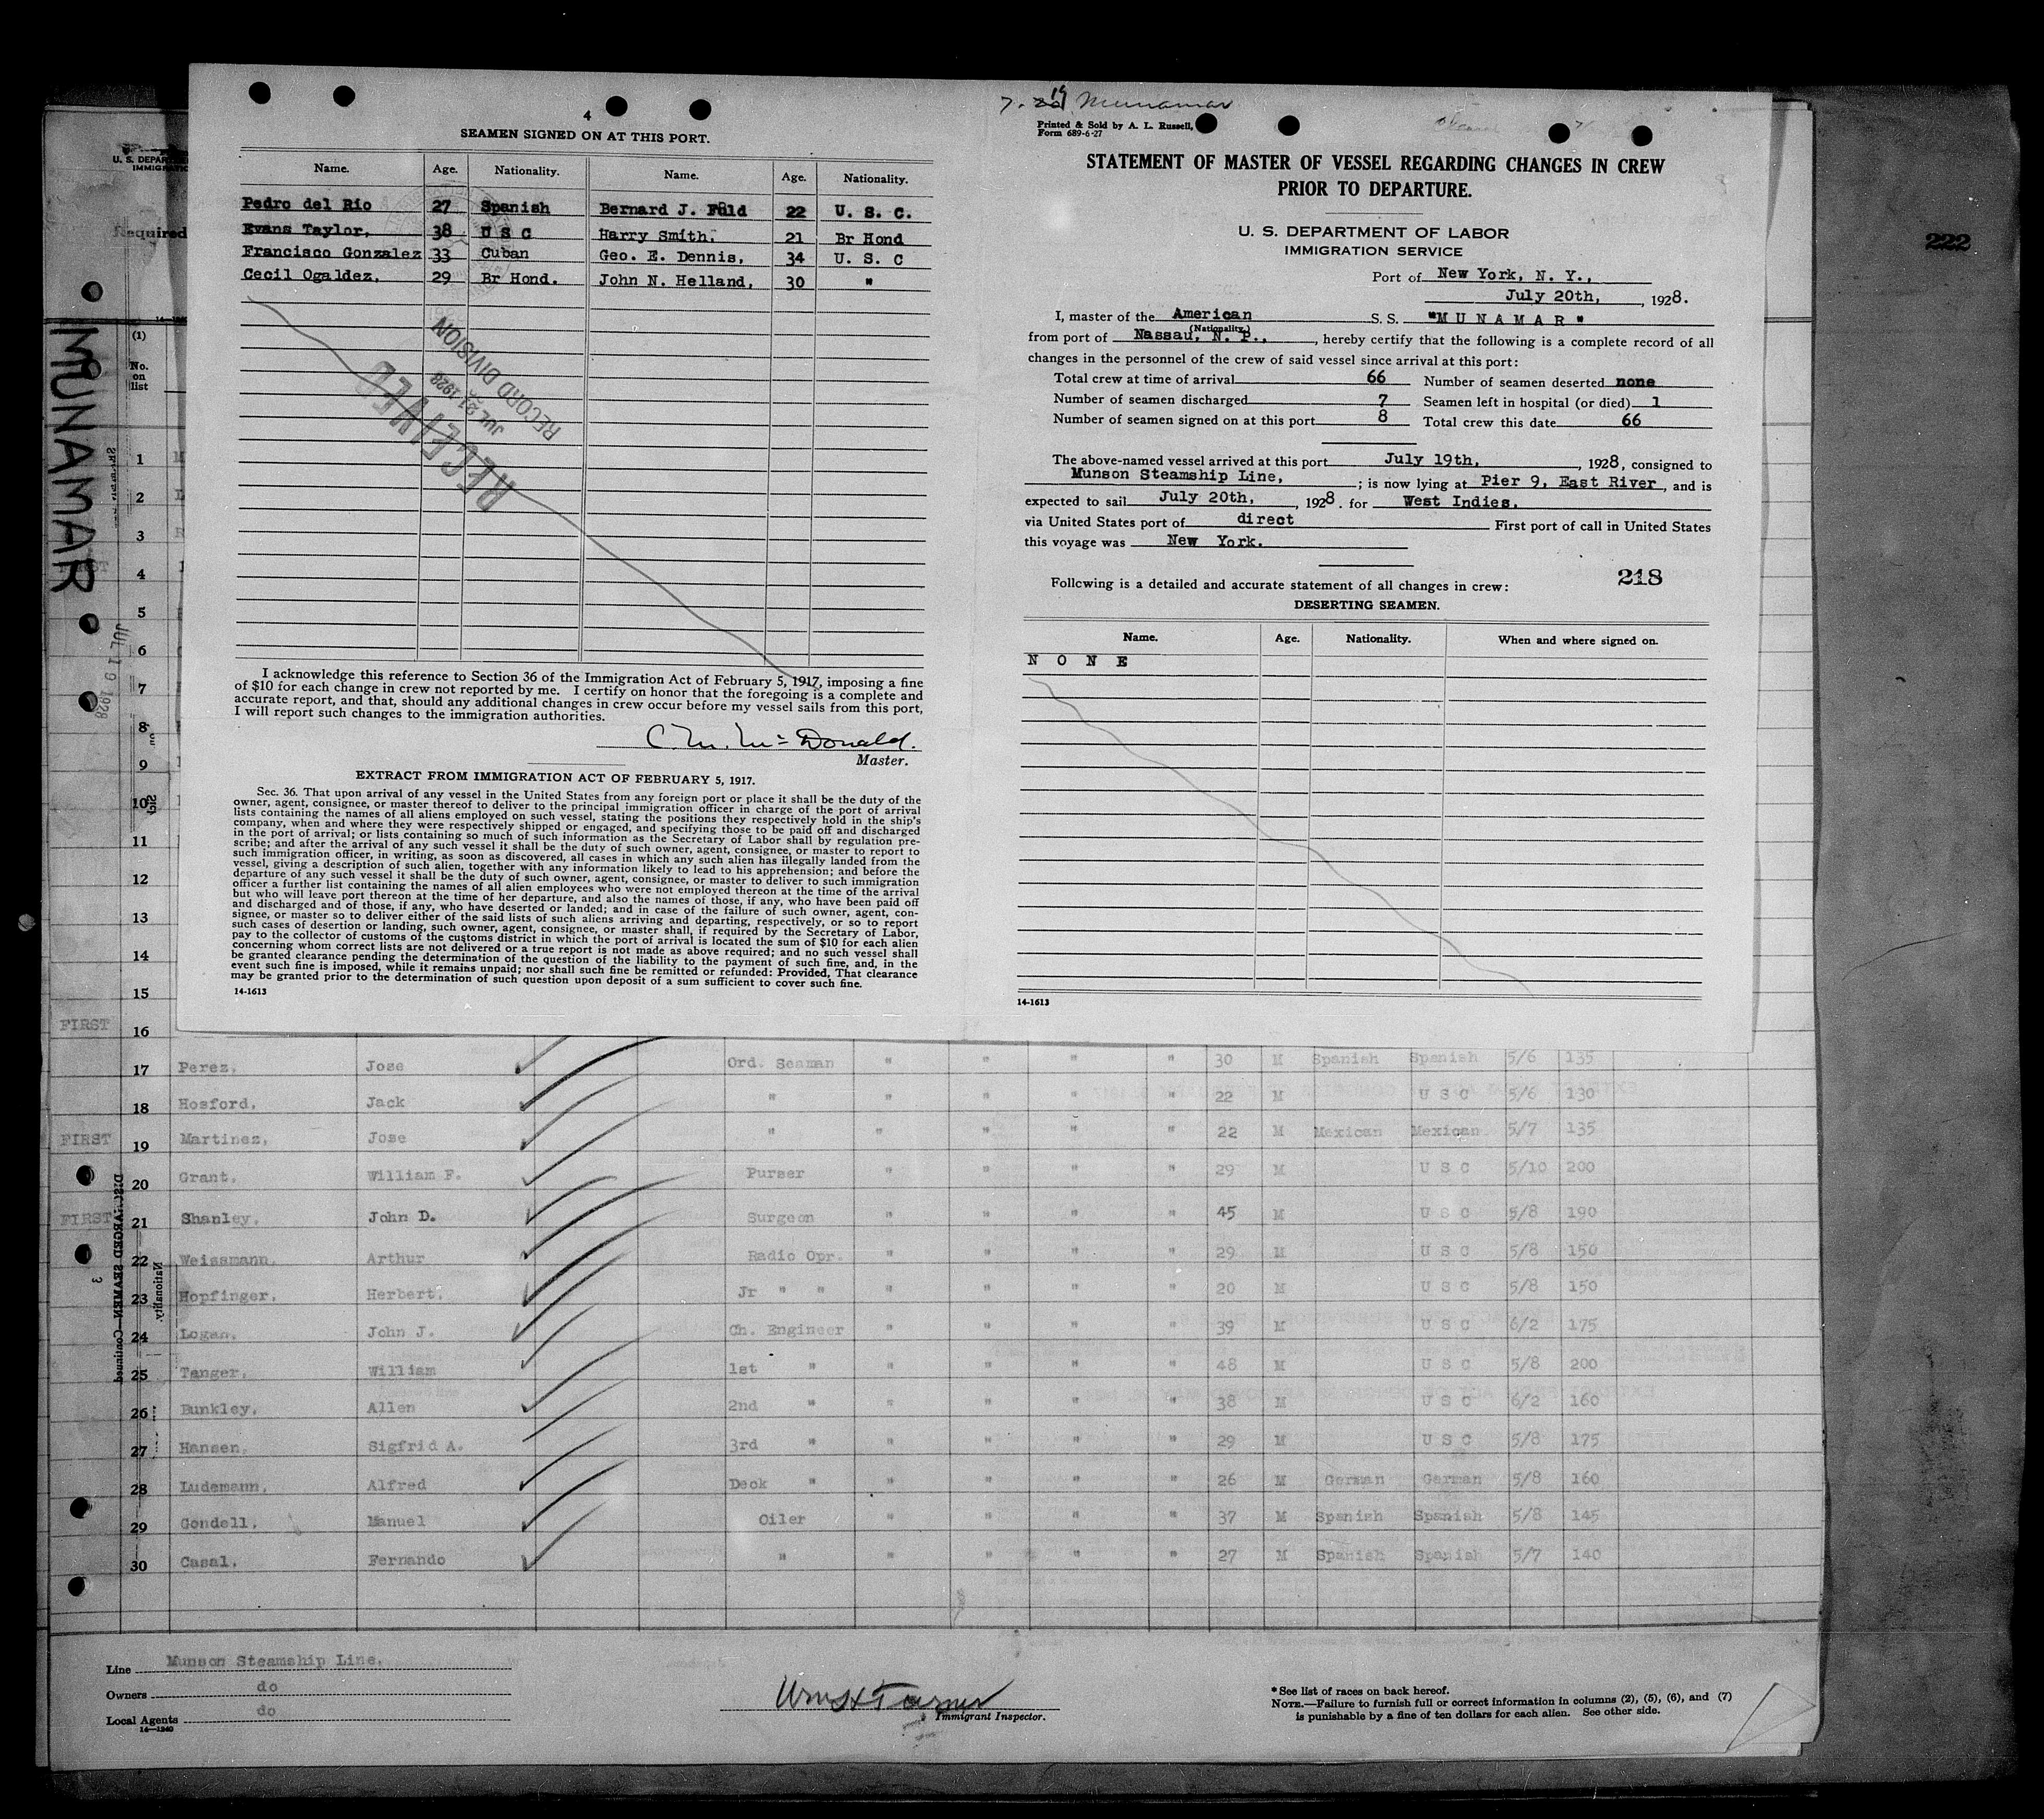 4
SEAMEN SIGNED ON AT THIS PORT.
Name. Age. Nationality. Name. Age. Nationality.
Pedro del Rio 27 Spanish Bernard J. Fuld 22 U. S. C.
Evans Taylor, 38 U S C Harry Smith, 21 Br Hond
Francisco Gonzalez 33 Cuban Geo. E. Dennis, 34 U. S. C
Cecil Ogaldez, 29 Br Hond. John N. Helland, 30 "
RECORD DIVISION
JUL 21 1928
RECEIVED
I acknowledge this reference to Section 36 of the Immigration Act of February 5, 1917, imposing a fine
of $10 for each change in crew not reported by me. I certify on honor that the foregoing is a complete and
accurate report, and that, should any additional changes in crew occur before my vessel sails from this port,
I will report such changes to the immigration authorities.
C. M. McDonald.
Master.
EXTRACT FROM IMMIGRATION ACT OF FEBRUARY 5, 1917.
Sec. 36. That upon arrival of any vessel in the United States from any foreign port or place it shall be the duty of the
owner, agent, consignee, or master thereof to deliver to the principal immigration officer in charge of the port of arrival
lists containing the names of all aliens employed on such vessel, stating the positions they respectively hold in the ship's
company, when and where they were respectively shipped or engaged, and specifying those to be paid off and discharged
in the port of arrival; or lists containing so much of such information as the Secretary of Labor shall by regulation pre-
scribe; and after the arrival of any such vessel it shall be the duty of such owner, agent, consignee, or master to report to
such immigration officer, in writing, as soon as discovered, all cases in which any such alien has illegally landed from the
vessel, giving a description of such alien, together with any information likely to lead to his apprehension; and before the
departure of any such vessel it shall be the duty of such owner, agent, consignee, or master to deliver to such immigration
officer a further list containing the names of all alien employees who were not employed thereon at the time of the arrival
but who will leave port thereon at the time of her departure, and also the names of those, if any, who have been paid off
and discharged and of those, if any, who have deserted or landed; and in case of the failure of such owner, agent, con-
signee, or master so to deliver either of the said lists of such aliens arriving and departing, respectively, or so to report
such cases of desertion or landing, such owner, agent, consignee, or master shall, if required by the Secretary of Labor,
pay to the collector of customs of the customs district in which the port of arrival is located the sum of $10 for each alien
concerning whom correct lists are not delivered or a true report is not made as above required; and no such vessel shall
be granted clearance pending the determination of the question of the liability to the payment of such fine, and, in the
event such fine is imposed, while it remains unpaid; nor shall such fine be remitted or refunded: Provided, That clearance
may be granted prior to the determination of such question upon deposit of a sum sufficient to cover such fine.
14-1613
7-19 Munamar
Printed & Sold by A. L. Russell,
Form 689-6-27
STATEMENT OF MASTER OF VESSEL REGARDING CHANGES IN CREW
PRIOR TO DEPARTURE.
U. S. DEPARTMENT OF LABOR
IMMIGRATION SERVICE
Port of New York, N. Y.,
July 20th, , 1928.
I, master of the American S. S. "M U N A M A R"
(Nationality)
from port of Nassau, N. P., , hereby certify that the following is a complete record of all
changes in the personnel of the crew of said vessel since arrival at this port:
Total crew at time of arrival 66 Number of seamen deserted none
Number of seamen discharged 7 Seamen left in hospital (or died) 1
Number of seamen signed on at this port 8 Total crew this date 66
The above-named vessel arrived at this port July 19th, , 1928, consigned to
Munson Steamship Line, ; is now lying at Pier 9, East River, and is
expected to sail July 20th, , 1928. for West Indies.
via United States port of direct First port of call in United States
this voyage was New York.
218
Following is a detailed and accurate statement of all changes in crew:
DESERTING SEAMEN.
Name. Age. Nationality. When and where signed on.
N O N E
14-1613
222
U. S. DEPAR
IMMIGRATIO
Required
MUNAMAR
JUL 19 1928
(1)
No.
on
list
1
2
3
4
5
6
7
8
9
10
11
12
13
14
15
FIRST 16
17 Perez, Jose Ord. Seaman " " " " 30 M Spanish Spanish 5/6 135
18 Hosford, Jack " " " " " 22 M U S C 5/6 130
FIRST 19 Martinez, Jose " " " " " 22 M Mexican Mexican 5/7 135
20 Grant, William F. Purser " " " " 29 M U S C 5/10 200
FIRST 21 Shanley, John D. Surgeon " " " " 45 M U S C 5/8 190
22 Weissmann, Arthur Radio Opr. " " " " 29 M U S C 5/8 150
23 Hopfinger, Herbert. Jr " " " " " " 20 M U S C 5/8 150
24 Logan, John J. Ch. Engineer " " " " 39 M U S C 6/2 175
25 Tanger, William 1st " " " " " 48 M U S C 5/8 200
26 Bunkley, Allen 2nd " " " " " 38 M U S C 6/2 160
27 Hansen, Sigfrid A. 3rd " " " " " 29 M U S C 5/8 175
28 Ludemann, Alfred Deck " " " " " 26 M German German 5/8 160
29 Gondell, Manuel Oiler " " " " 37 M Spanish Spanish 5/8 145
30 Casal, Fernando " " " " " 27 M Spanish Spanish 5/7 140
DISCHARGED SEAMEN—Continued
3
Nationality.
Line Munson Steamship Line,
Owners do
Local Agents do
14—1240
Wm H Turner
Immigrant Inspector.
* See list of races on back hereof.
NOTE.—Failure to furnish full or correct information in columns (2), (5), (6), and (7)
is punishable by a fine of ten dollars for each alien. See other side.